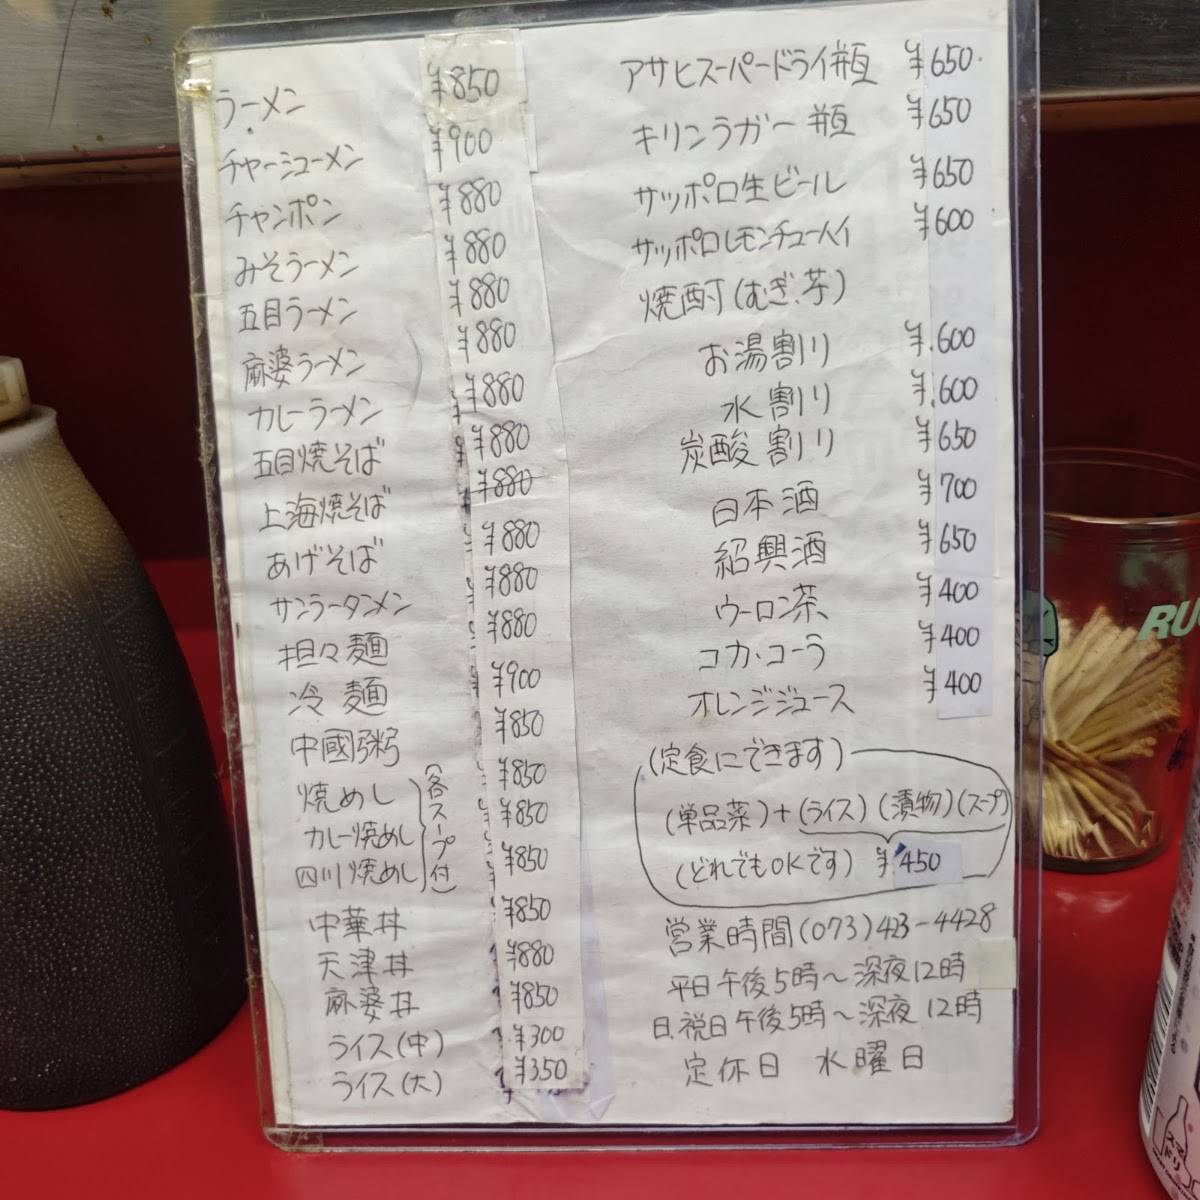 ラーメン ¥850
チャーシューメン ¥900
チャンポン ¥880
みそラーメン ¥880
五目ラーメン ¥880
麻婆ラーメン ¥880
カレーラーメン ¥880
五目焼そば ¥880
上海焼そば ¥880
あげそば ¥880
サンラータンメン ¥880
担々麺 ¥880
冷麺 ¥900
中國粥 ¥850
焼めし ¥850
カレー焼めし ¥850
四川焼めし ¥850
(各スープ付)
中華丼 ¥850
天津丼 ¥880
麻婆丼 ¥850
ライス(中) ¥300
ライス(大) ¥350
アサヒスーパードライ瓶 ¥650
キリンラガー瓶 ¥650
サッポロ生ビール ¥650
サッポロレモンチューハイ ¥600
焼酎(むぎ、芋)
お湯割り ¥600
水割り ¥600
炭酸割り ¥650
日本酒 ¥700
紹興酒 ¥650
ウーロン茶 ¥400
コカ・コーラ ¥400
オレンジジュース ¥400
(定食にできます)
(単品菜)+(ライス)(漬物)(スープ)
(どれでもOKです) ¥450
営業時間(073)423-4428
平日午後5時〜深夜12時
日、祝日午後5時〜深夜12時
定休日 水曜日
RU
スマドリ